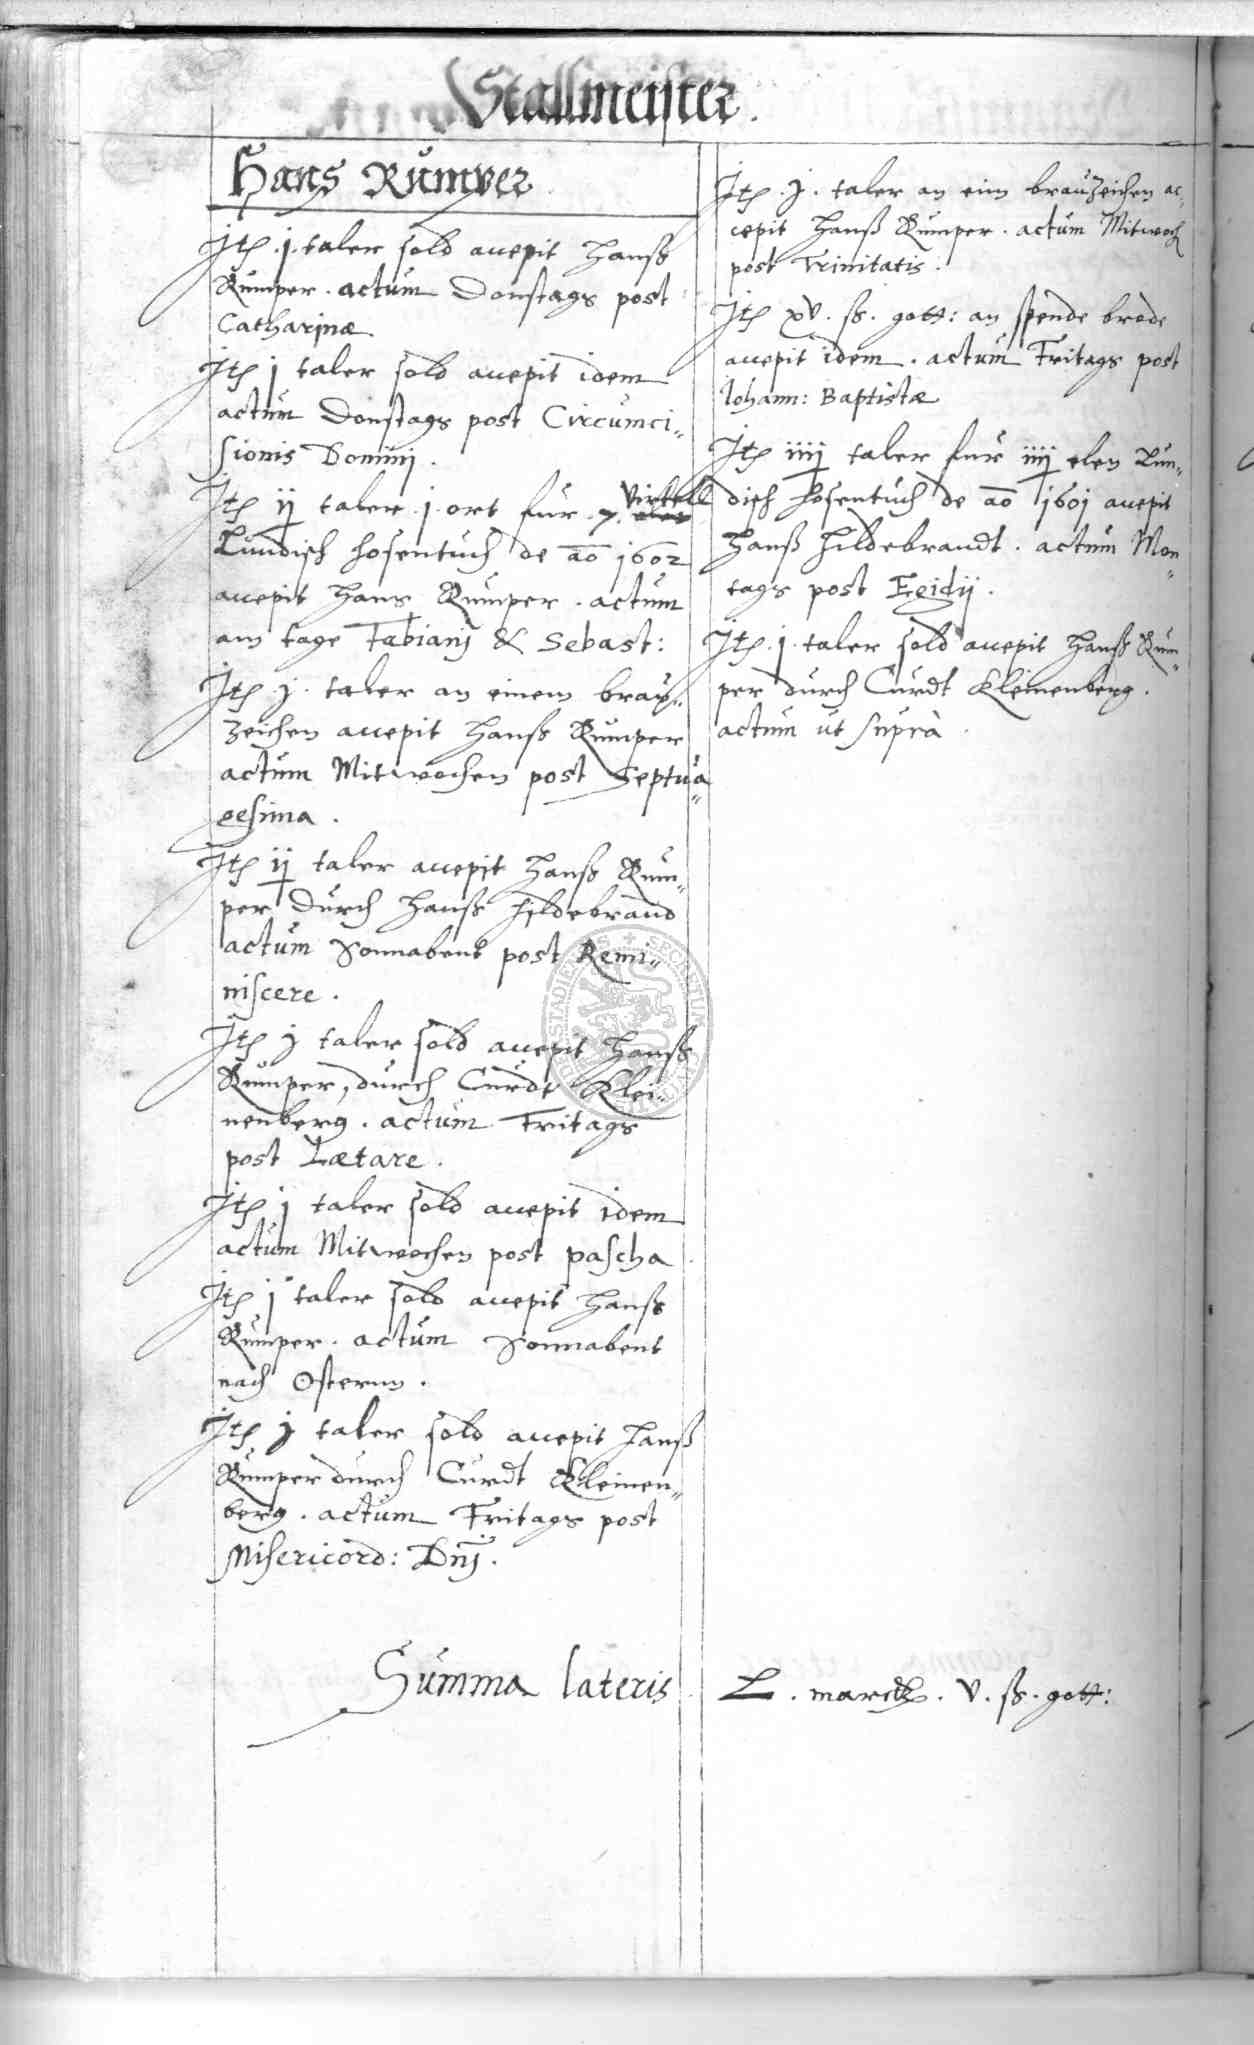 Stallmeister.
Hans Rumper
Jtem j taler sold accepit Hanß
Rumper. actum Donstags post
Catharinæ
Jtem j taler sold accepit idem
actum Donstags post Circumci„
sionis Dominj.
Jtem ij taler j ort fur 7 virtell elen
Lundisch hosentuch de ao 1602
accepit Hans Rumper. actum
am tage Fabianj & Sebast:
Jtem j taler an einem brau„
zeichen accepit Hanß Rumper
actum Mitwochen post Septua„
gesima.
Jtem ij taler accepit Hanß Rum„
per durch Hanß Hildebrand
actum Sonnabent post Remi„
niscere.
Jtem j taler sold accepit Hanß
Rumper, durch Curdt Klei„
nenberg. actum Fritags
post Lætare.
Jtem j taler sold accepit idem
actum Mitwochen post pascha
Jtem j taler sold accepit Hanß
Rumper. actum Sonnabent
nach Osternn.
Jtem j taler sold accepit Hanß
Rumper durch Curdt Kleinen„
berg. actum Fritags post
Misericord: Dnj.
Jtem j. taler an eim brauzeichen ac„
cepit Hanß Rumper. actum Mitwoch
post Trinitatis.
Jtem xv. ß. gott: an spende brode
accepit idem. actum Fritags post
Johann: Baptistæ
Jtem iiij taler fur iiij elen Lun„
disch hosentuch de ao 1601 accepit
Hanß Hildebrandt. actum Mon„
tags post Egidij.
Jtem j. taler sold accepit Hanß Rum„
per durch Curdt Kleinenberg.
actum ut suprà.
Summa lateris L. marck. v. ß. gott:
SECRETUM